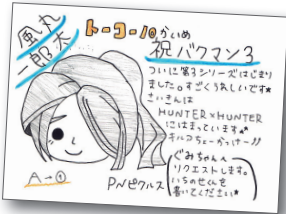 風丸
一郎太
トーコー10かいめ
祝バクマン3
ついに第3シリーズはじまり
ました。すごくうれしいです★
さいきんは
HUNTER×HUNTER
にはまっています★
キルアちょーかっけー!!
ぐみちゃんへ
リクエストします。
いちのせくんを
書いてください★
A→①
PNピクルス